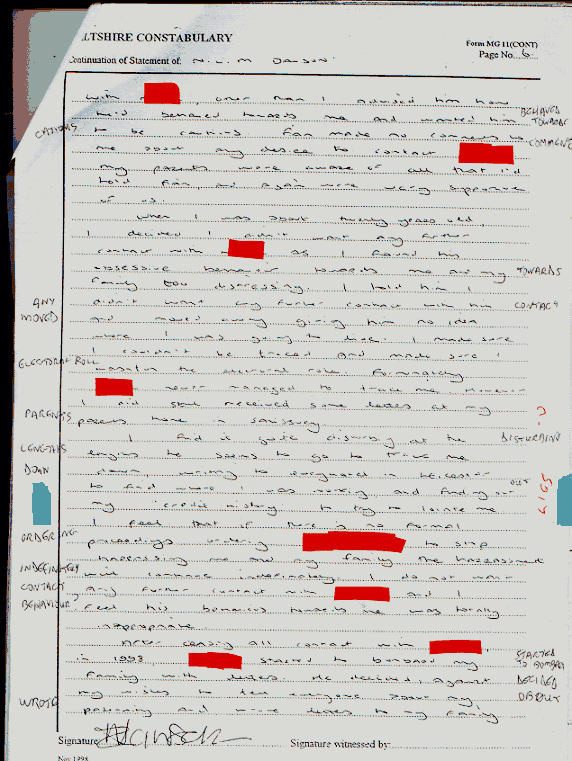 LTSHIRE CONSTABULARY
Form MG 11(CONT)
Continuation of Statement of: N.L.M DAWSON
Page No. 6.
with , over man I advised him how
he'd behaved towards me and wanted him BEHAVED TOWARDS
CATIONS to be cautious. Fan made no comments to COMMENTS
me about any desire to contact
my parents were aware of all that I'd
told Fan, and again were very supportive
of us.
When I was about twenty years old,
I decided I didn't want any further
contact with as I found his
obsessive behaviour towards me and my TOWARDS
family too distressing. I told him I
ANY didn't want any further contact with him CONTACT
MOVED and moved away giving him no idea
where I was going to live. I made sure
I couldn't be traced and made sure I
ELECTORAL ROLL wasn't on the electoral role. Fortunately
never managed to trace me, however
I did still received some letters at my
PARENTS parents home in Salisbury
I find it quite disturbing at the DISTURBING
LENGTHS lengths he seems to go to trace me
DOWN down, writing to in Leicester OUT
to find where I was working and finding out
my 'credit history' to try to locate me
I feel that if there is no formal
ORDERING proceedings ordering to stop
harrassing me and my family the harassment
INDEFINITELY will continue indefinitely. I do not want
CONTACT any further contact with and I
BEHAVIOUR feel his behaviour towards me was totally
inappropriate.
After ceasing all contact with , STARTED
in 1993, started to bombard my TO BOMBARD
family with letters. He decided, against DECIDED
my wishes to tell everyone about my
WROTE paternity and wrote letters to my family
Signature: Signature witnessed by:
Nov 1998